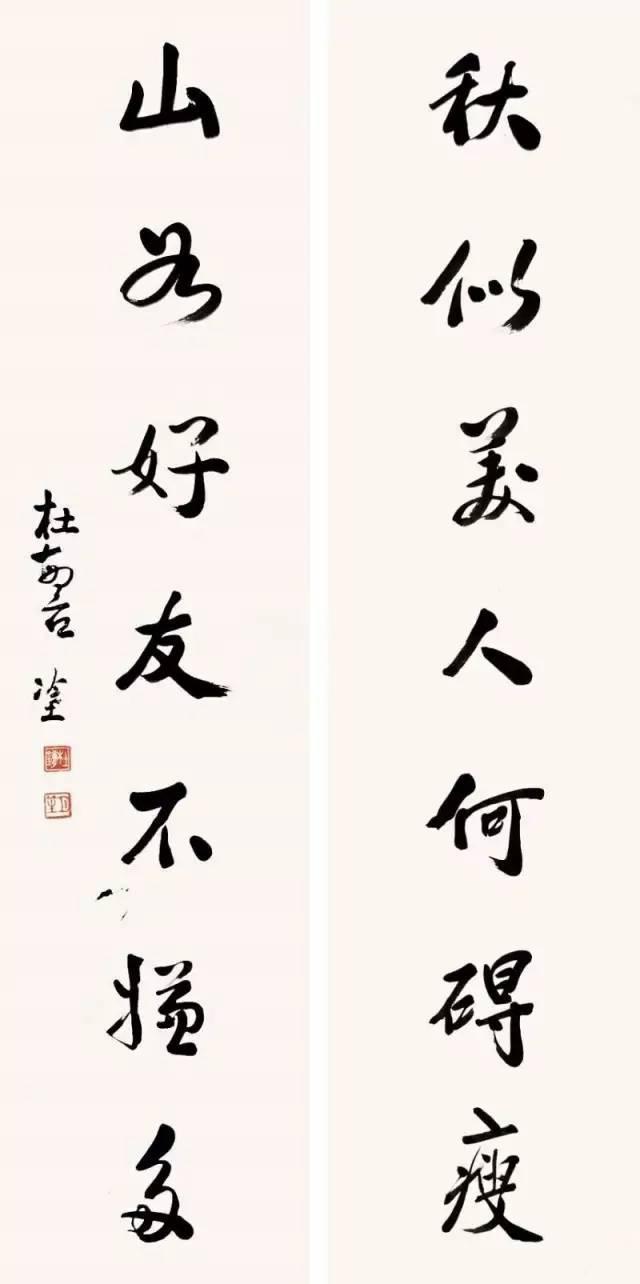 秋似美人何碍瘦
山若好友不嫌多
杜 石 塗